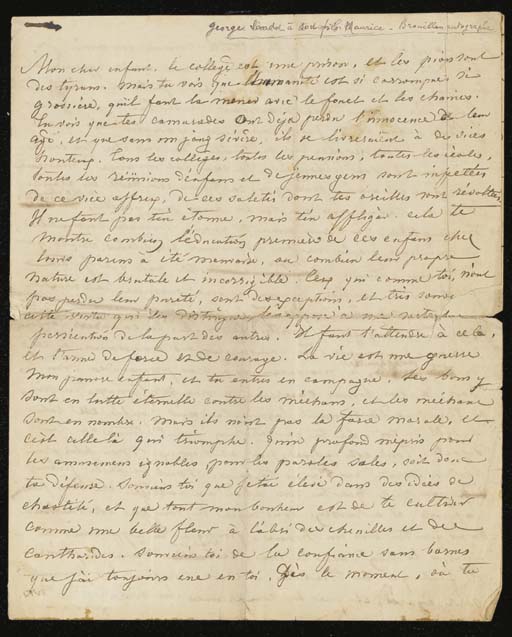 George Sand à son fils Maurice - Brouillon autographe
Mon cher enfant. le collège est une prison, et les pions sont
des tyrans. Mais tu vois que l'humanité est si corrompue, si
grossière, qu'il faut la mener avec le fouet et les chaines.
Tu vois que tes camarades ont déja perdu l'innocence de leur
age, et que sans un joug sévère, ils se livreraient à des vices
honteux. Tous les collèges, toutes les pensions, toutes les écoles,
toutes les réunions d'enfans et de jeunes gens sont infectées
de ce vice affreux, de ces saletés dont tes oreilles sont révoltées.
Il ne faut pas t'en étonner, mais t'en affliger. cela te
montre combien l'éducation première de ces enfans chez
leurs parens a été mauvaise, ou combien leur propre
nature est brutale et incorrigible. Ceux qui comme toi, n'ont
pas perdu leur pureté, sont des exceptions, et très souvent
cette vertu qui les distingue les expose à une
persécution de la part des autres. Il faut t'attendre à cela,
et t'armer de force et de courage. La vie est une guerre
mon pauvre enfant, et tu entres en campagne. Les bons y
sont en lutte éternelle contre les méchans, et les méchans
sont en nombre. Mais ils n'ont pas la force morale, et
c'est celle là qui triomphe. Qu'un profond mépris pour
les amusemens ignobles, pour les paroles sales, soit donc
ta défense. Souviens toi que je t'ai élevé dans des idées de
chasteté, et que tout mon bonheur est de te cultiver
comme une belle fleur à l'abri des chenilles et des
cantharides. Souviens toi de la confiance sans bornes
que j'ai toujours eue en toi. Dès le moment, où tu